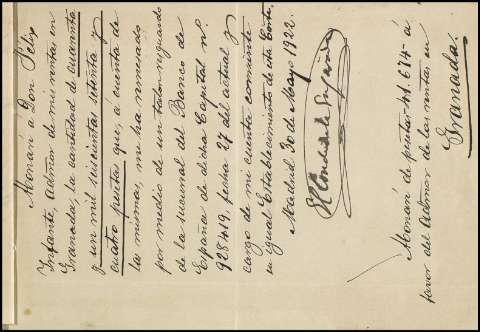 Abonaré á Don Felix
Infante, Admor de mis rentas en
Granada, la cantidad de cuarenta
y un mil seiscientas setenta y
cuatro pesetas que, á cuenta de
las mismas, me ha remesado
por medio de un talon resguardo
de la sucursal del Banco de
España de dicha Capital nº
928419, fecha 27 del actual y
cargo de mi cuenta corriente
en igual Establecimiento de esta Corte.
Madrid 30 de Mayo 1922.
El Conde de
Abonaré de pesetas 41.674 á
favor del Admor de las rentas en
Granada.